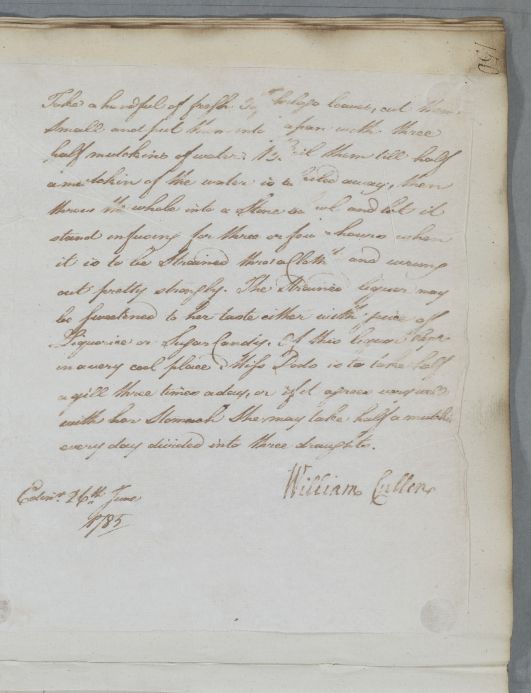 150
Take a handful of fresh leaves, cut them
small and put them into a pan with three
half mutchkins of water: Boil them till half
a mutchkin of the water is boiled away, then
throw the whole into a Stone and let it
stand infusing for three or four hours when
it is to be Strained thro' a Cloth and wrung
out pretty strongly. The Strained liquor may
be sweetened to her taste either with juice of
Liquorice or Sugar Candy. Of this liquor kept
in a very cool place Miss Dodo is to take half
a gill three times a day, or if it agrees very well
with her Stomach She may take half a mutchkin
every day divided into three draughts.
William Cullen
Edinr. 26th June
1785